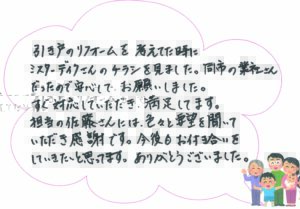 引き戸のリフォームを考えてた時に
ミスターデイクさんのチラシを見ました。同市の業社さん
だったので安心して、お願いしました。
すぐ対応していただき、満足してます。
担当の佐藤さんには、色々と要望を聞いて
いただき感謝です。今後もお付き合いを
していきたいと思ってます。ありがとうございました。